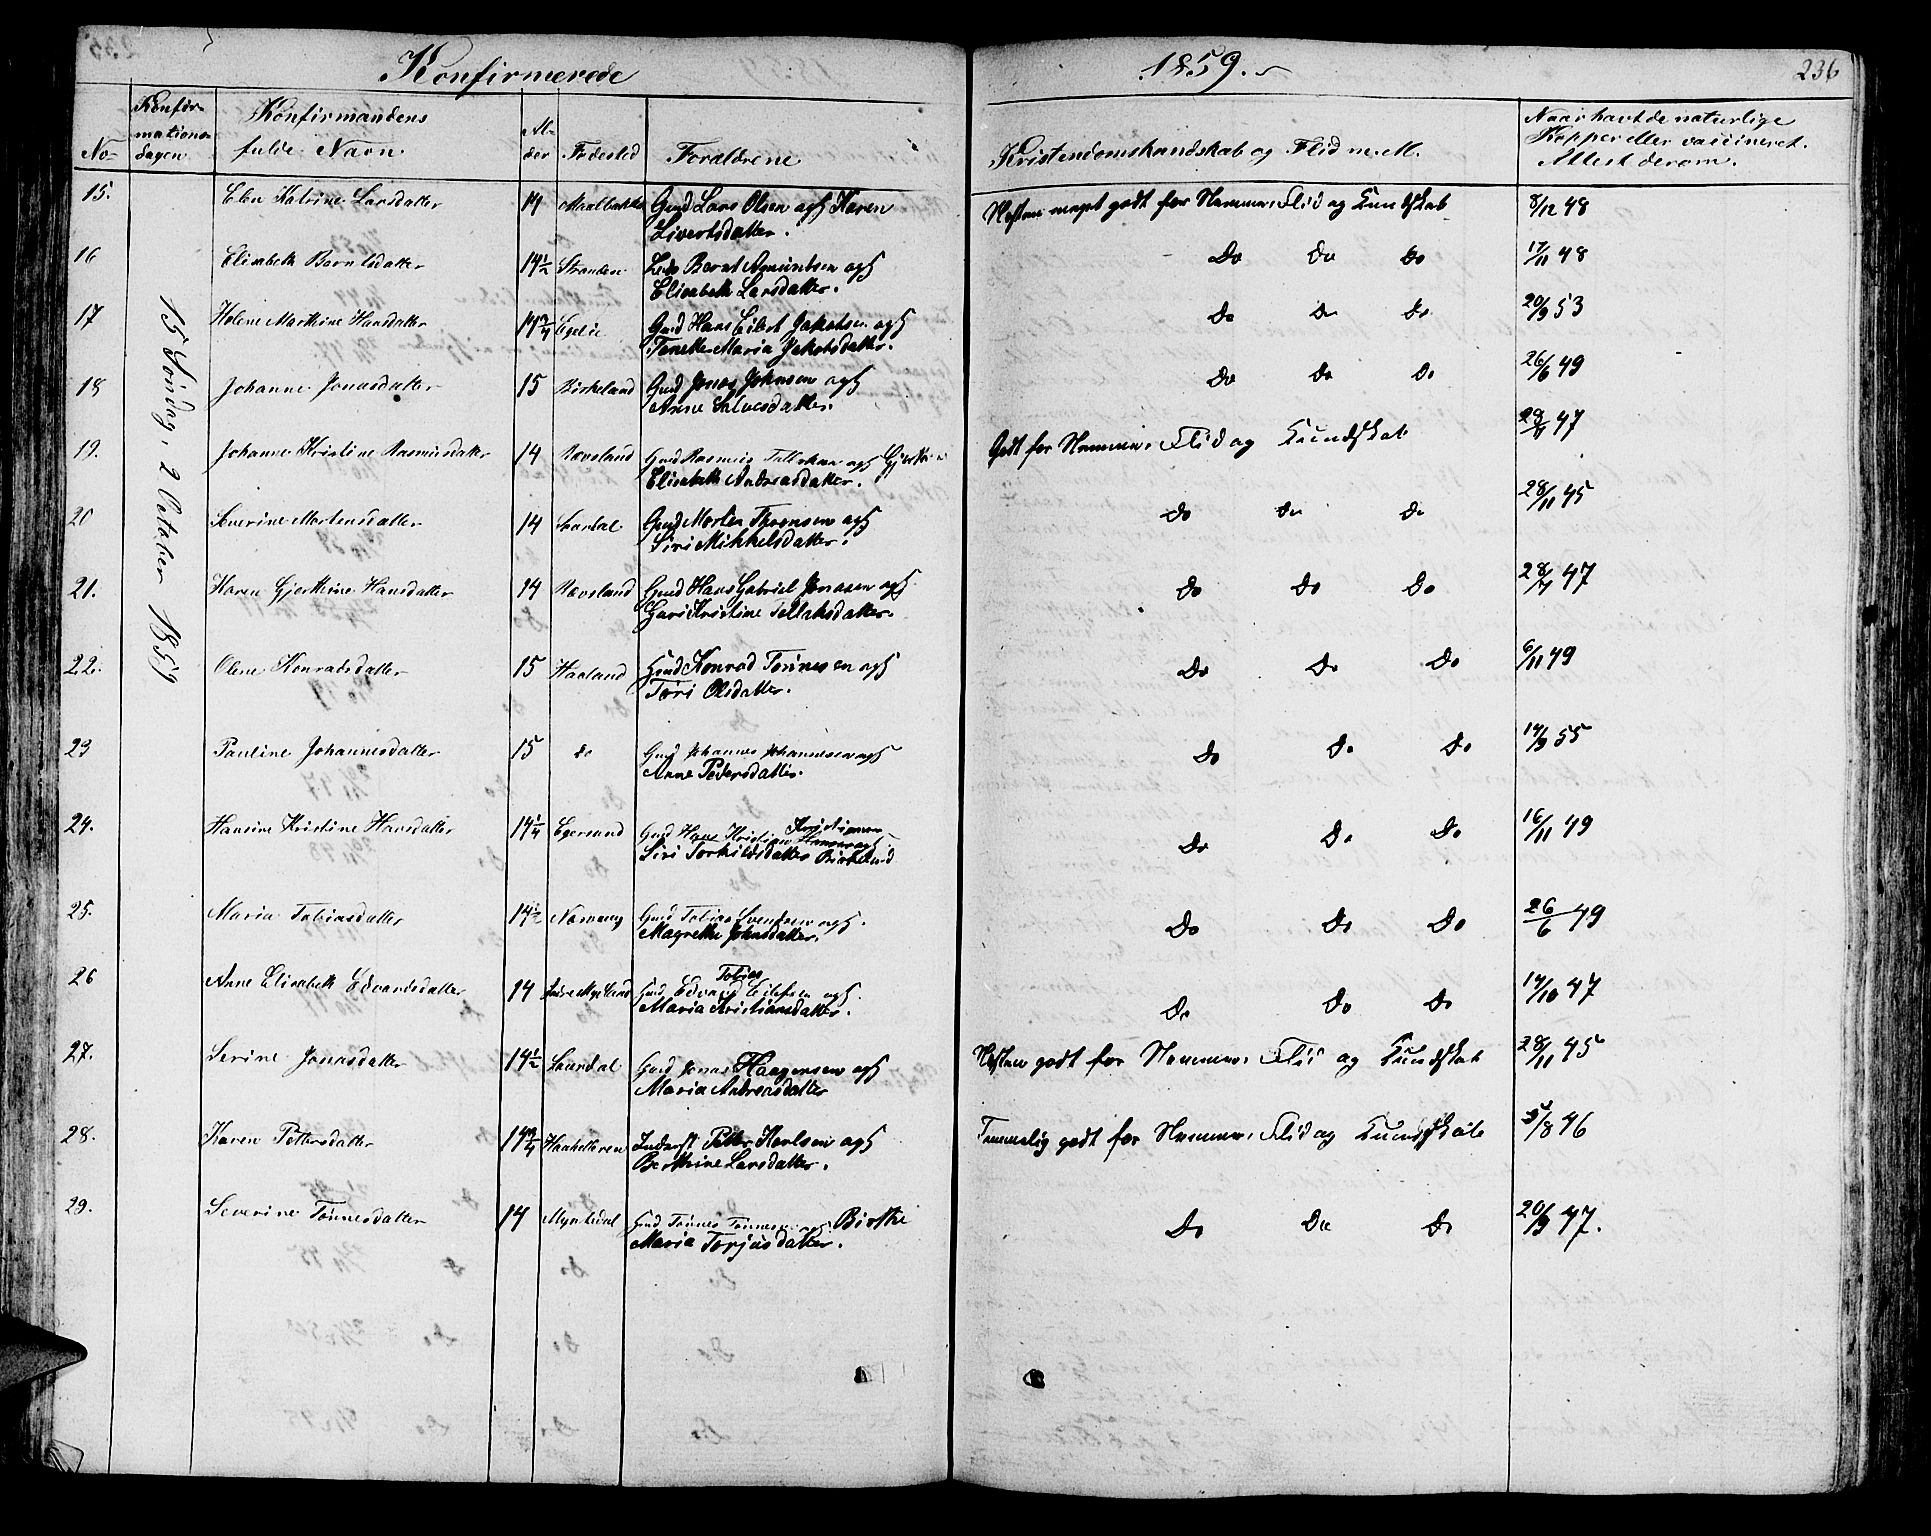 Konfirmerede 1859. 236
No Konfirmationsdagen Konfirmandens fulde Navn Alder Fødested Forældrene Kristendomskundskab og Flid m. M. Naar havt de naturlige Kopper eller vaccineret. Attest derom.
15 Søndag, 2 October 1859
15. Elen Katrine Larsdatter 14 Maalbakke Gmd Lars Olsen og H Karen
Sivertsdatter. Næsten meget godt for Nemme, Flid og Kundskab 8/12 48
16 Elisabeth Berntsdatter 14½ Stranden Bernt Amundsen og H
Elisabeth Larsdatter. Do Do Do 17/11 48
17 Helene Marthine Hansdatter 14¾ Egelie Gmd Hans Eilert Jakobsen og H
Tonette Maria Jakobsdatter. Do Do Do 20/9 53
18 Johanne Jonasdatter 15 Birkeland Gmd Jonas Johnsen og H
Anne Salvesdatter. Do Do Do 26/6 49
19. Johanne Kristine Rasmusdatter 14 Rævsland Gmd Rasmus Tollaksen og H
Elisabeth Andreasdatter. Godt for Nemme, Flid og Kundskab 28/11 47
20 Severine Mortensdatter 14 Saardal Gmd Morten Thorsen og H
Siri Mikkelsdatter. Do Do Do 28/11 45
21. Karen Gjerthine Hansdatter 14 Rævsland Gmd Hans Gabriel Jonasen og H
Guri Kristine Tollaksdatter. Do Do Do 47
22. Olene Konradsdatter 15 Haaland Gmd Konrad Tønnesen og H
Tøri Olsdatter. Do Do Do 6/11 49
23 Pauline Johannesdatter 15 do Gmd Johannes Johannessen og H
Anne Pedersdatter. Do Do Do 14/9 55
24. Hansine Kristine Hansdatter 14¼ Egersund Gmd Hans Kristian Kristiansen
Siri Torkildsdatter Birkeland Do Do Do 16/11 49
25. Maria Tobiasdatter 14½ Gmd Tobias Svendsen og H.
Magrethe Johnsdatter. Do Do Do 26/6 49
26 Anne Elisabeth Edvardsdatter 14 Indre Mydland Gmd Tobias
Edvard Eilefsen og H.
Maria Kristiansdatter. Do Do Do 14/10 47
27. Serine Jonasdatter 14½ Saardal Gmd Jonas Haagensen og H
Maria Andreasdatter Næsten godt for Nemme, Flid og Kundskab 28/11 45
28. Karen Pettersdatter 14¾ Petter Karlsen og H
Berthine Larsdatter. Temmelig godt for Nemme, Flid og Kundskab 46
29. Severine Tønnesdatter 14 Gmd Tønnes Tønnesen og H Birthe
Maria Torjusdatter. Do Do Do 20/9 47.